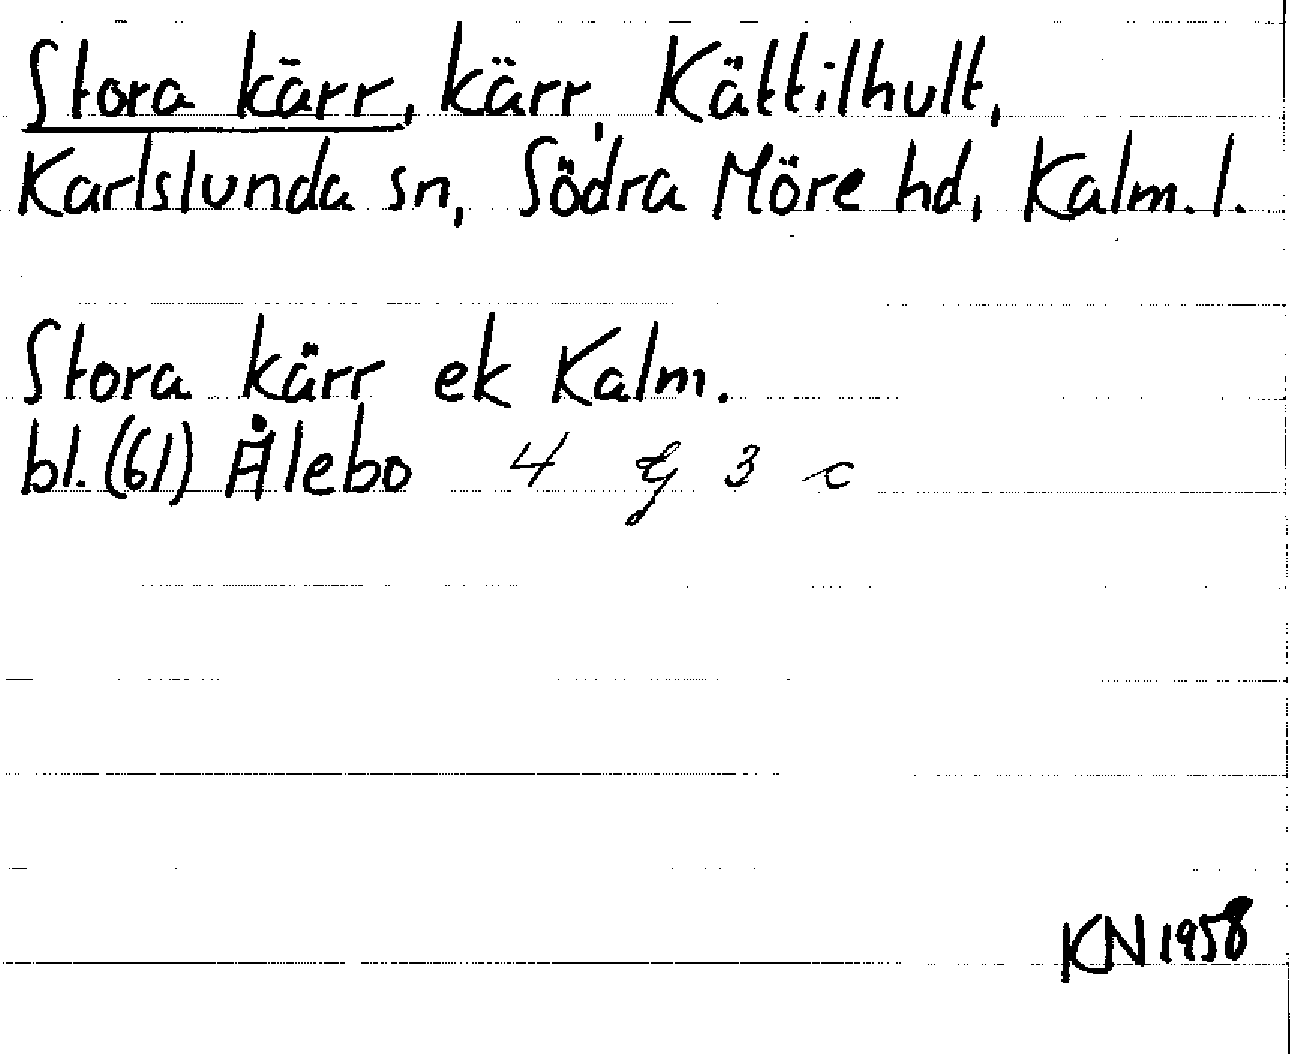 Stora kärr, kärr, Kättilhult,
Karlslunda sn, Södra Möre hd, Kalm. l.
Stora kärr ek Kalm.
bl. (61) Ålebo 4 G 3 c
KN 1958